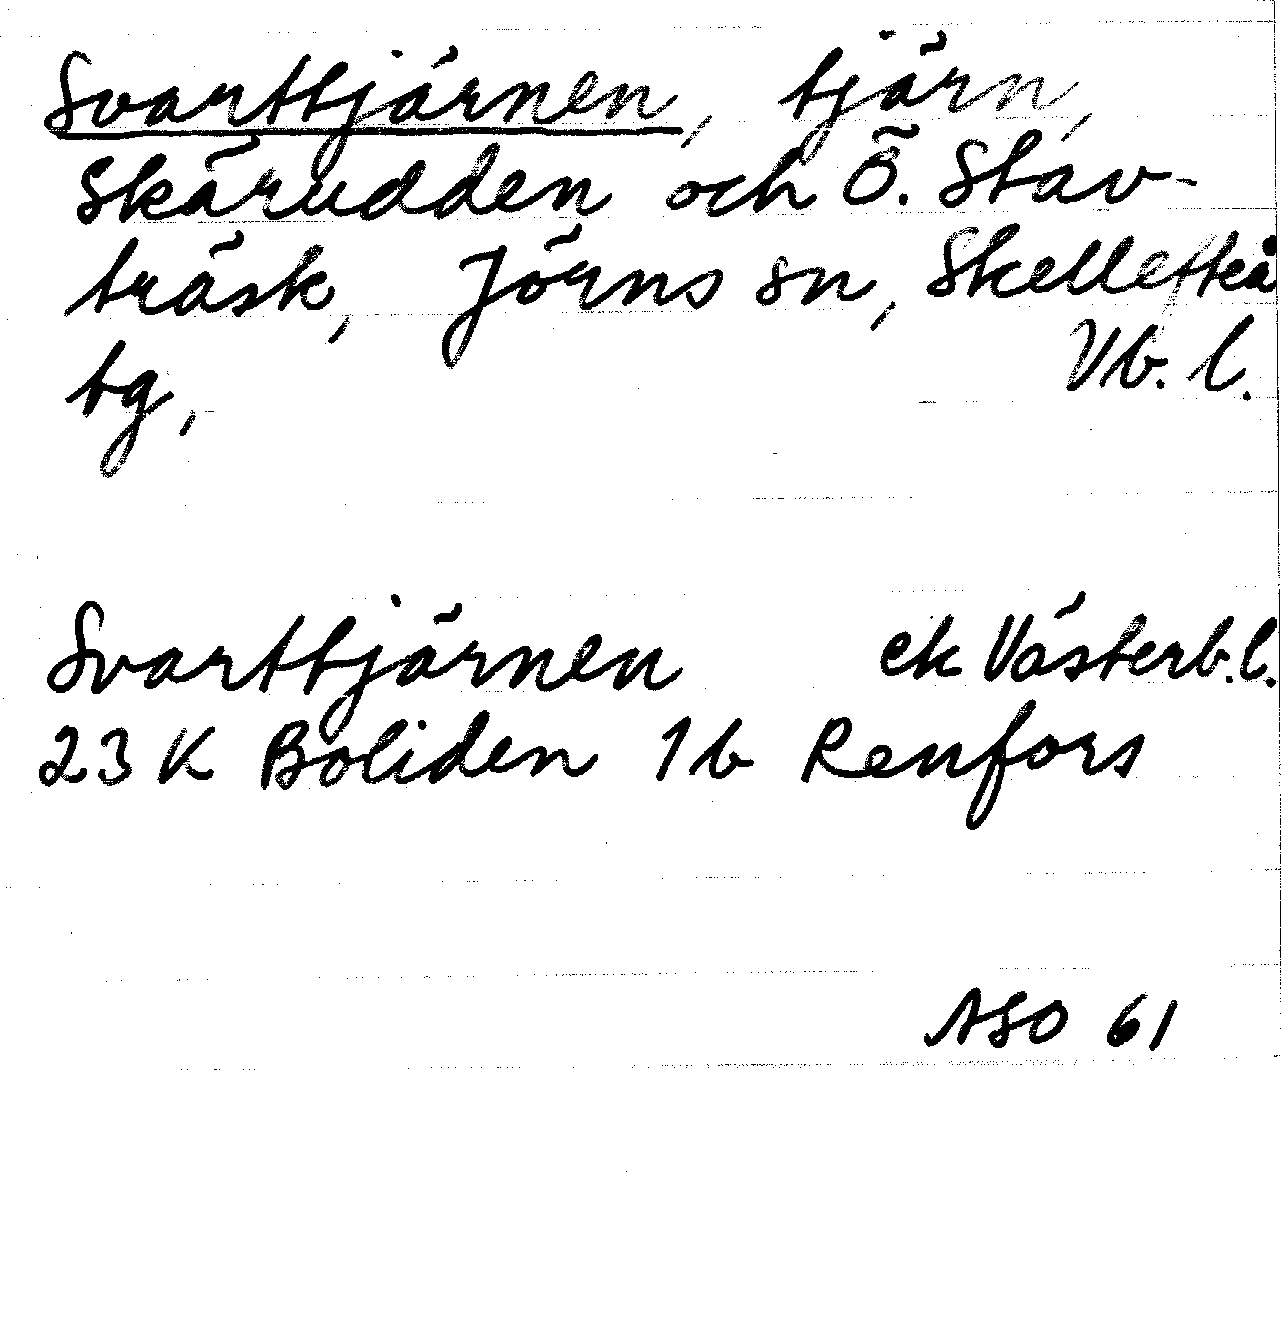 Svarttjärnen, tjärn,
Skärudden och Ö. Stav-
träsk, Jörns sn, Skellefteå
tg, Vb. l.
Svarttjärnen ek Västerb.l.
23 K Boliden 1b Renfors
ASO 61